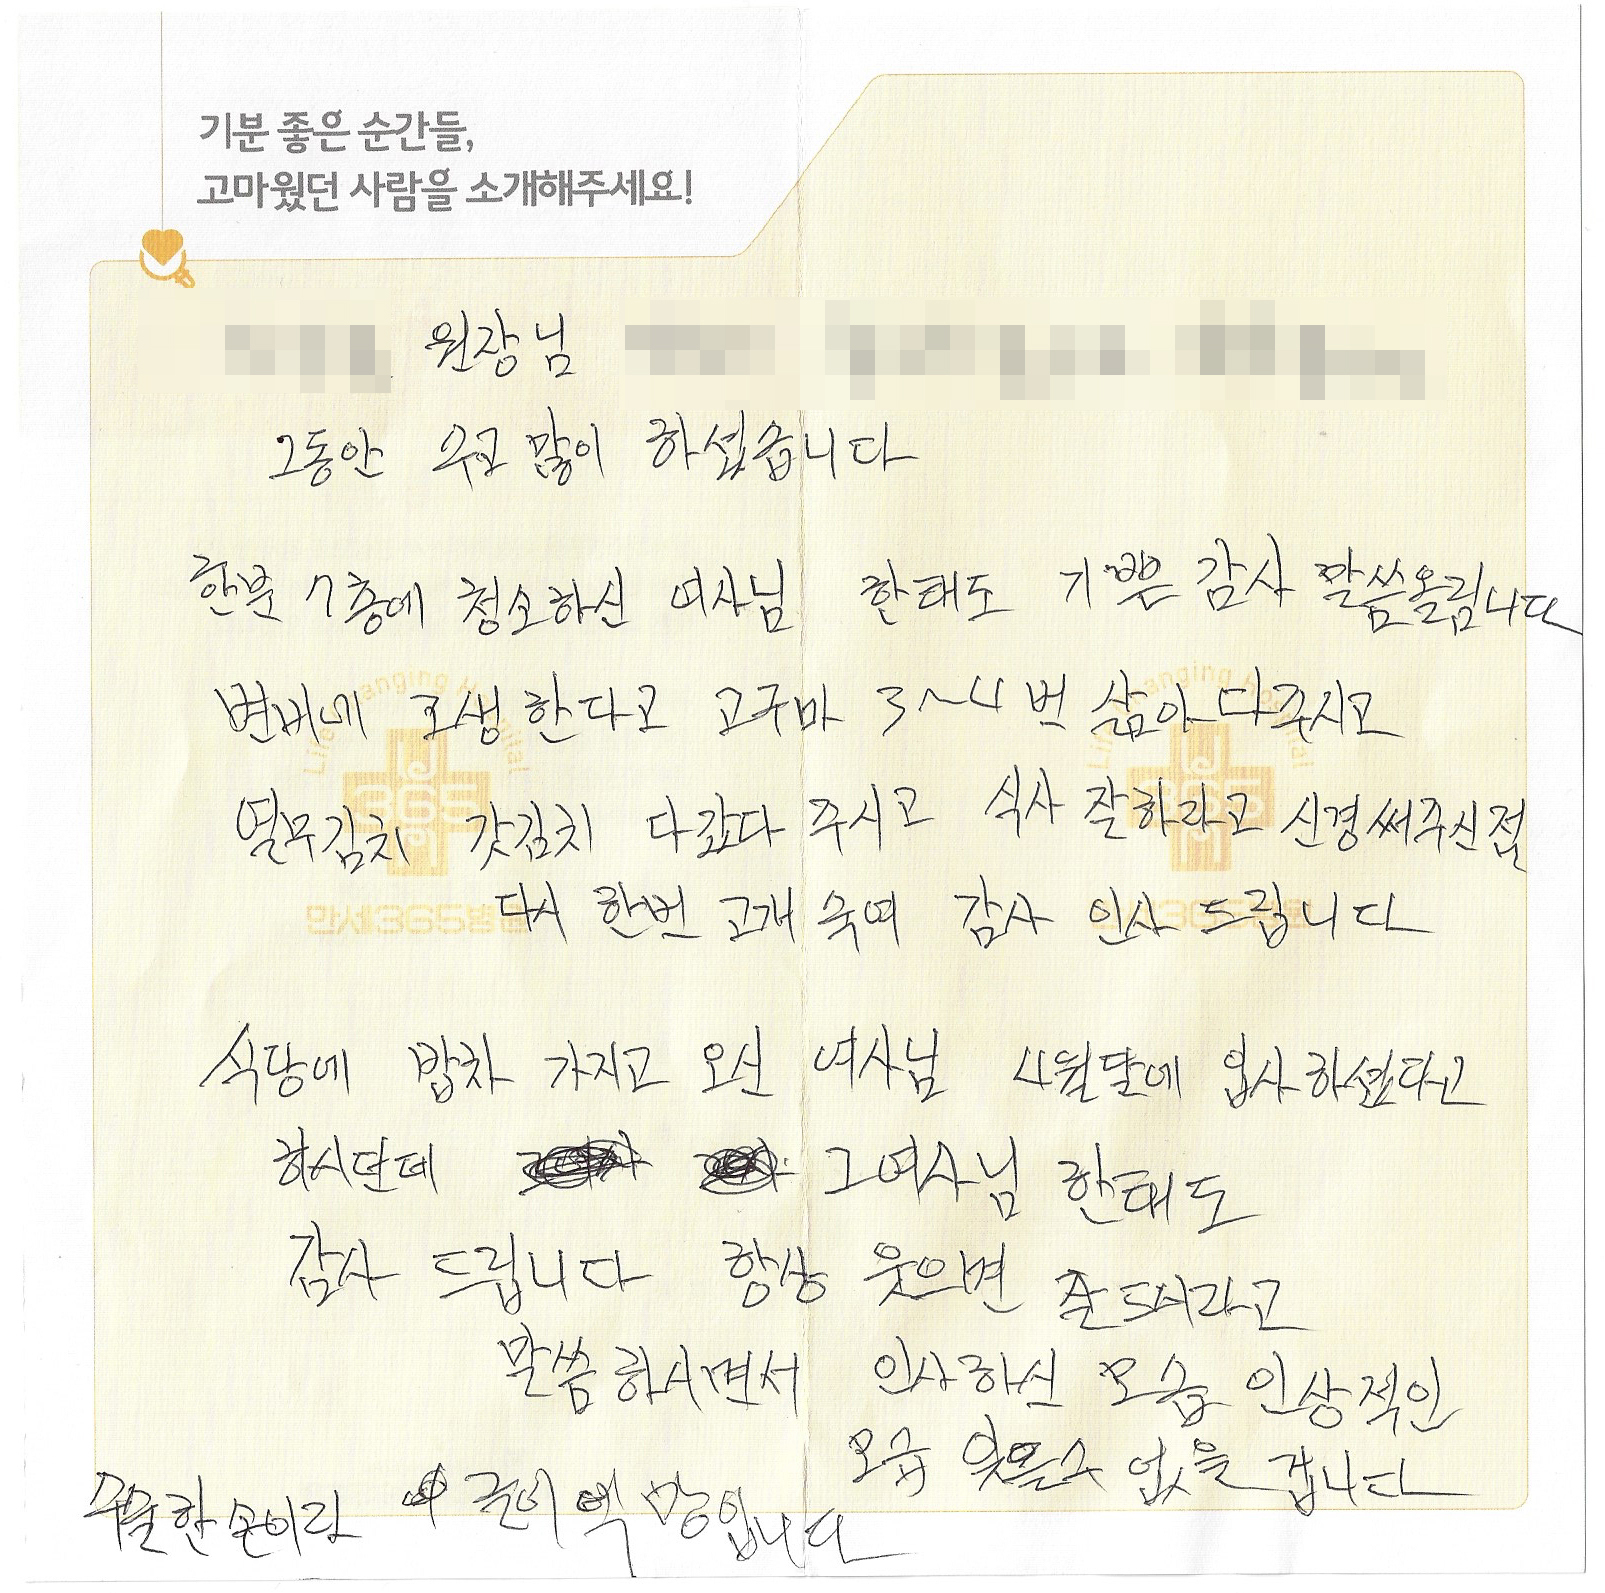 기분 좋은 순간들,
고마웠던 사람을 소개해주세요!
원장님
그동안 수고 많이 하셨습니다
한분 7층에 청소하신 여사님 한태도 기쁜 감사 말씀올립니다
변비에 고생한다고 고구마 3~4번 삶아다주시고
열무김치 갓김치 다갔다 주시고 식사 잘하라고 신경써주신점
다시 한번 고개 숙여 감사 인사 드립니다
식당에 밥차 가지고 오신 여사님 4월달에 입사하셨다고
하시던데 그여사님 한태도
감사 드립니다 항상 웃으면 잘드더라고
말씀하시면서 인사하신 모습 인상적인
모습 잊을수 없을 겁니다
수술한 손이라 글이 엉망입니다
Life Changing Hospital
365
만세365병원